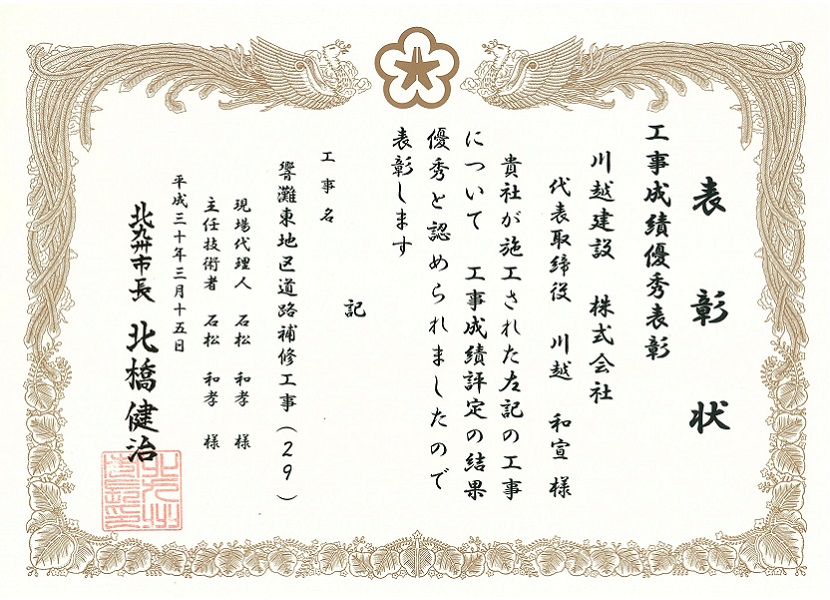 表彰状
工事成績優秀表彰
川越建設 株式会社
代表取締役 川越 和宣 様
貴社が施工された左記の工事
について 工事成績評定の結果
優秀と認められましたので
表彰します
記
工事名
響灘東地区道路補修工事(29)
現場代理人 石松 和孝 様
主任技術者 石松 和孝 様
平成三十年三月十五日
北九州市長 北橋健治